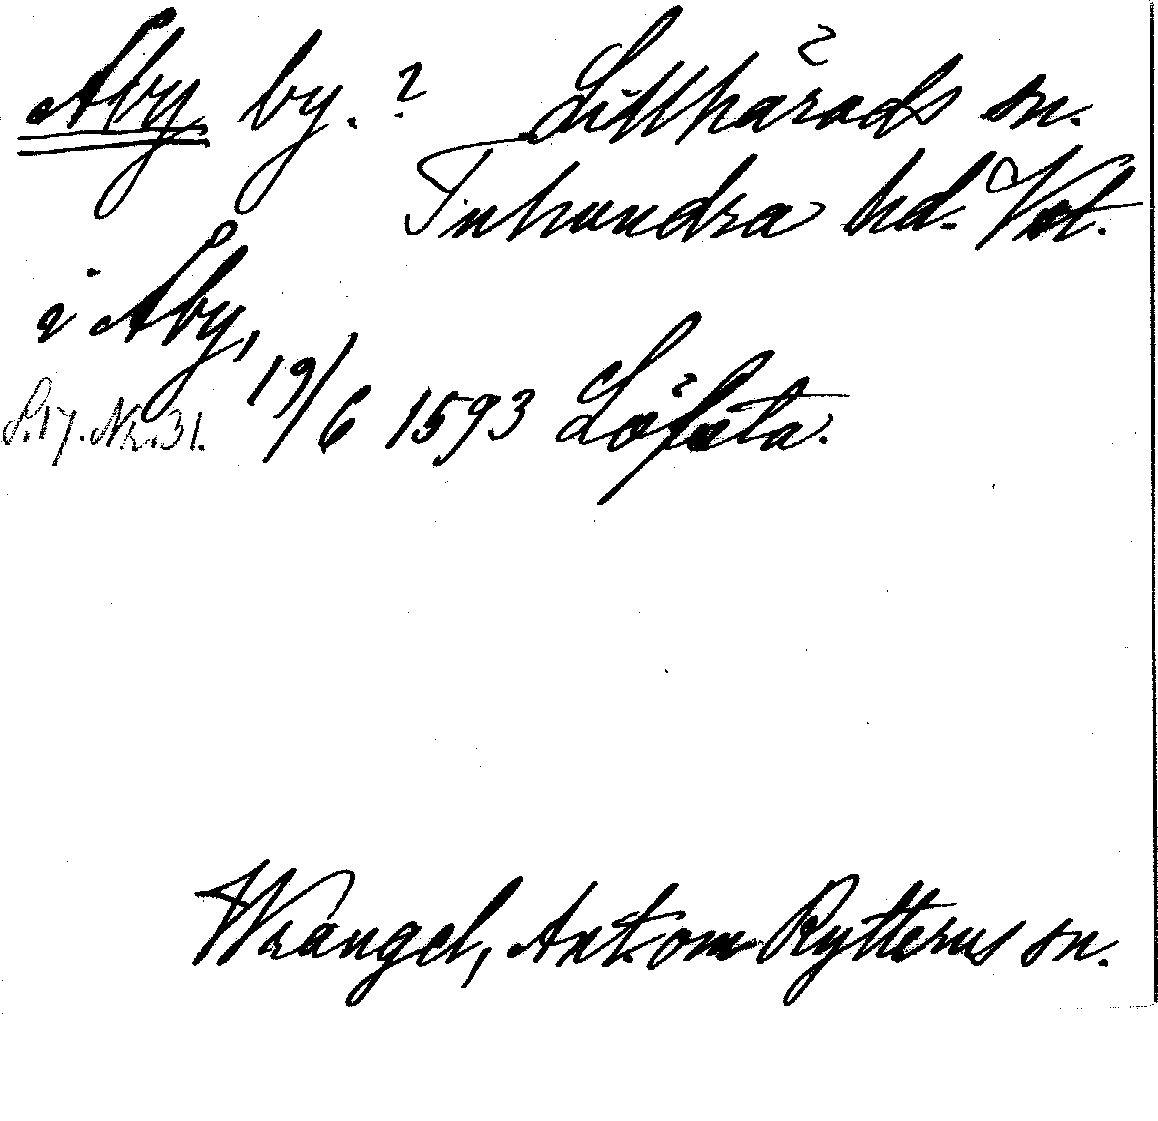 Åby by.? Lillhärads sn.
Tuhundra hd. Vstl.
i Åby, 19/6 1593 Löfsta.
S.17. Nr.31.
Wrangel, Ant. om Rytterns sn.